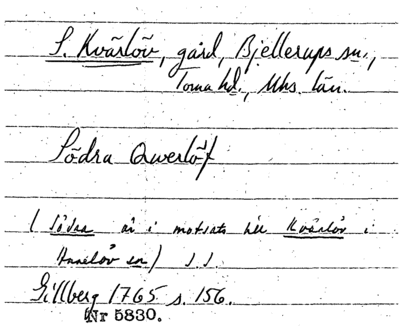 S. Kvärlöv, gård, Bjellerups sn.,
Torna hd., Mhs. län.
Södra Qwerlöf
( Södra är i motsats till Kvärlöv i
Annelöv sn) S.S.
Gillberg 1765 s. 156.
Nr 5830.